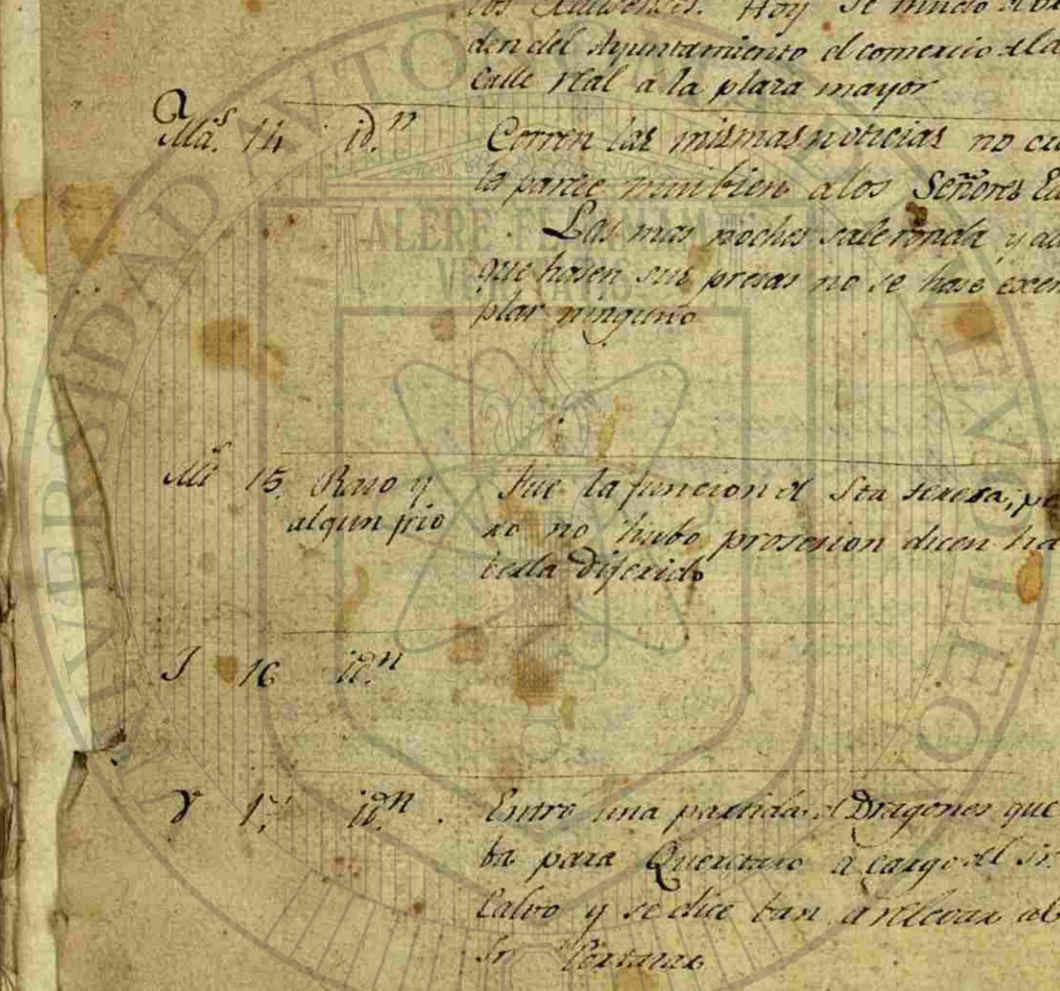 los Hoy se mudo
den del Ayuntamiento el comercio de la
Calle Real a la plaza mayor
Mas. 14 id.n Corren las mismas noticias no
la parte mui bien a los Señores
Las mas noches sale ronda y
que hasen sus presas no se hase exem
plar ninguno
Mis 15. Raso y Fue la funcion de Sta teresa, pe
algun frio ro no hubo prosesion dicen ha
berla diferido
J 16 id.n
V 17 id.n Entró una partida de Dragones que
ba para Queretaro a cargo del Sr.
Calvo y se dice ban a rellevar al
Sr
UNIVERSIDAD AUTONOMA DE NUEVO LEON
ALERE FLAMMAM
VERITATIS